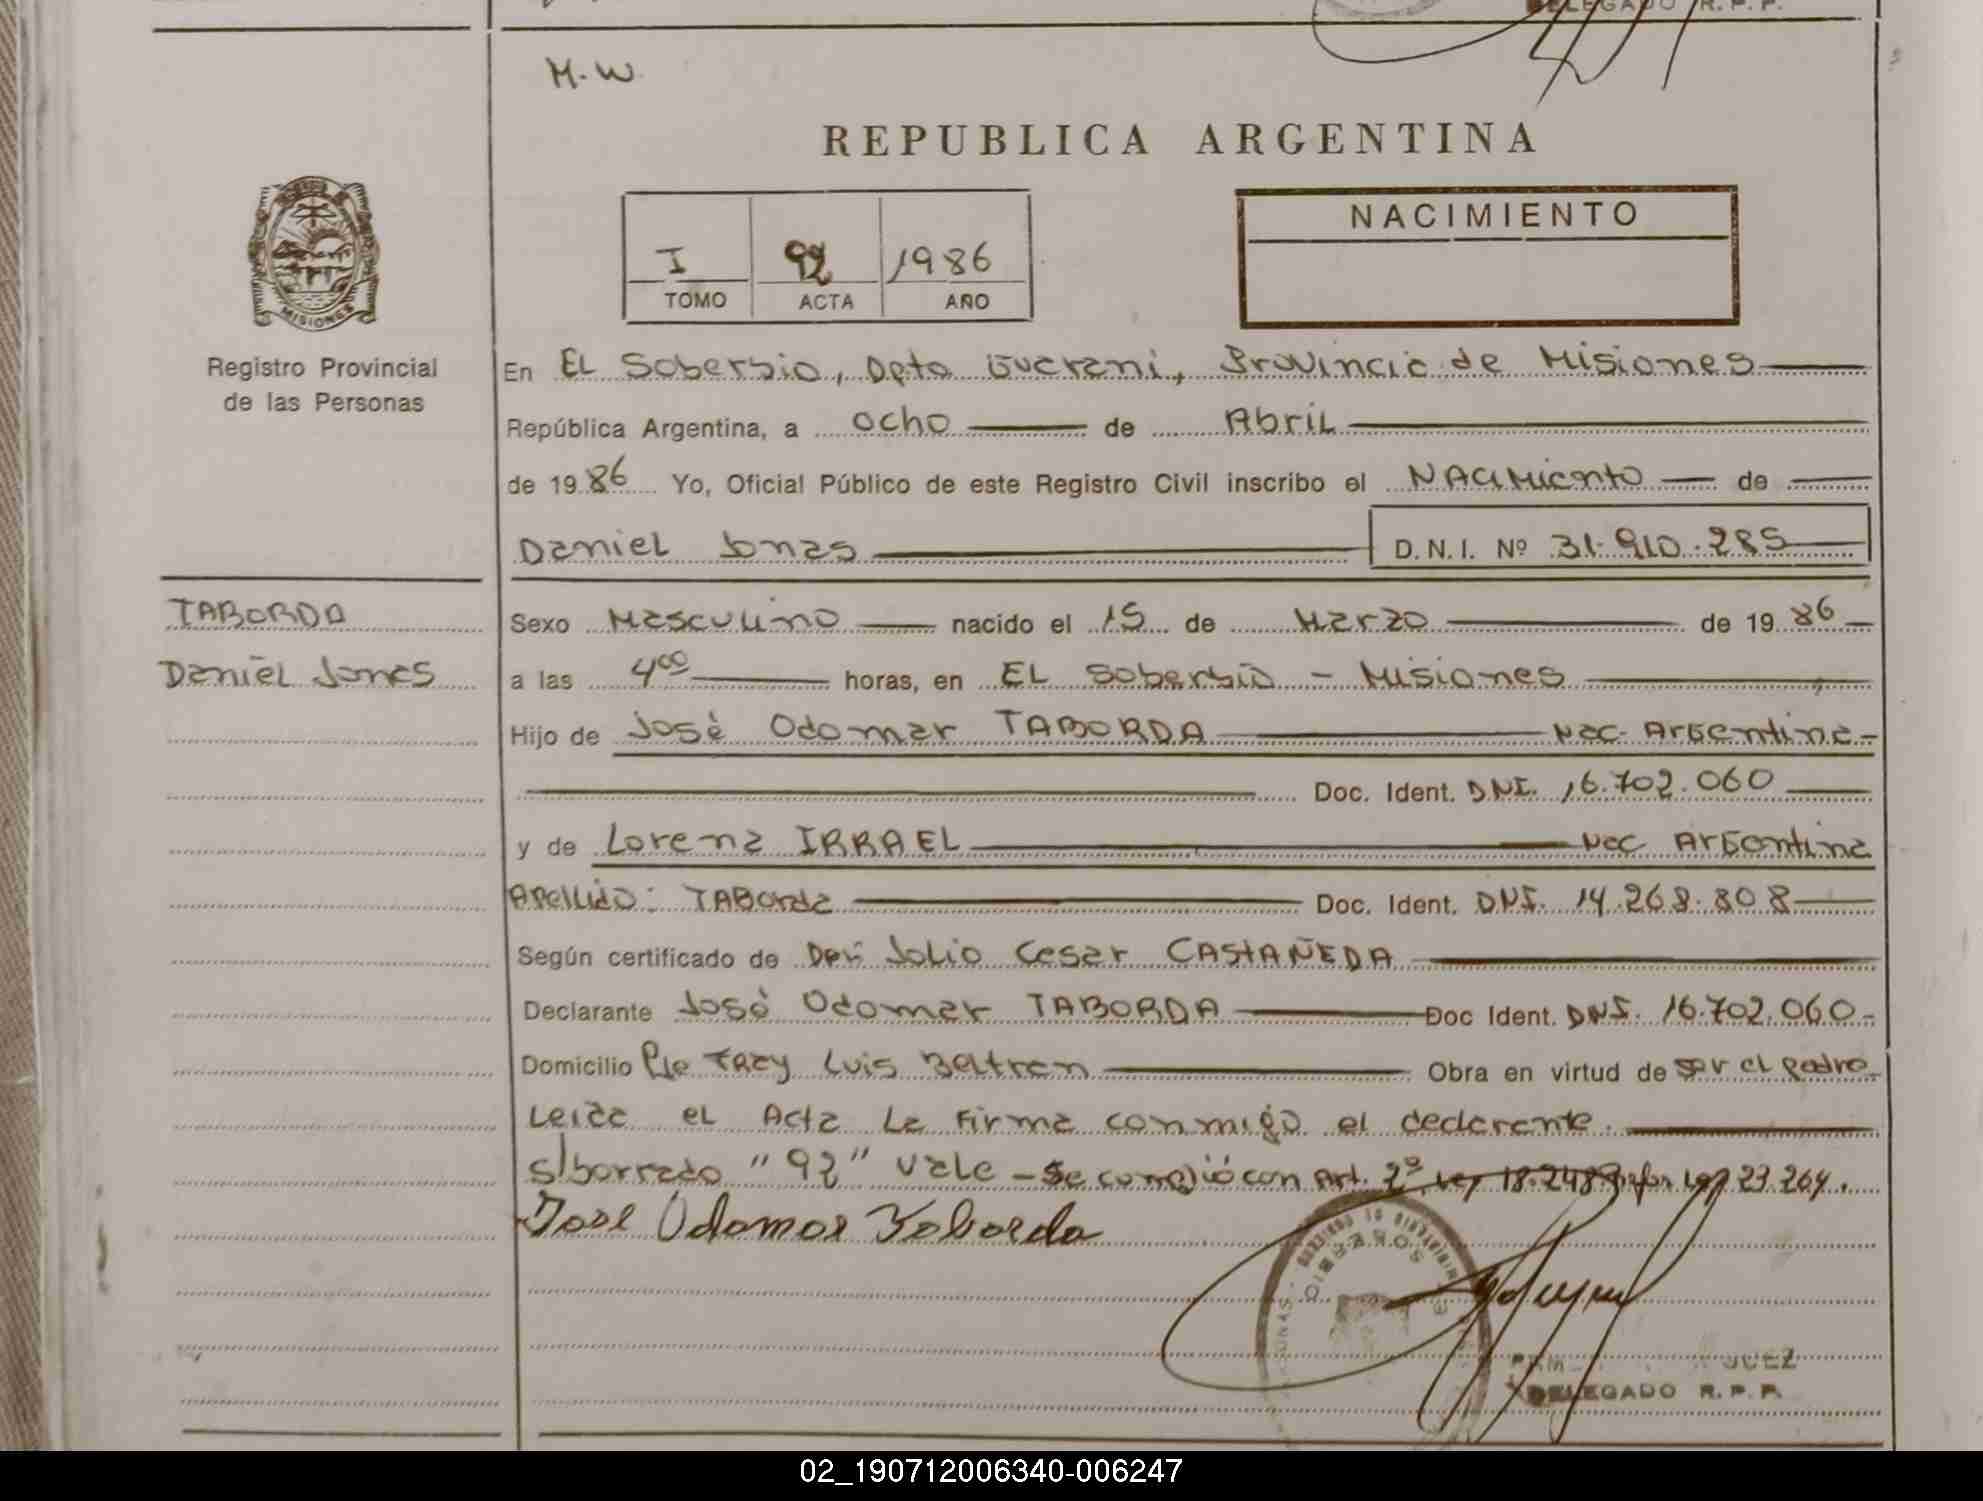 DELEGADO R. P. P.
M.W.
REPUBLICA ARGENTINA
NACIMIENTO
I 92 1986
TOMO ACTA AÑO
MISIONES
Registro Provincial
de las Personas
En EL Soberbio, Dpto Guarani, Provincia de Misiones
República Argentina, a ocho de Abril
de 1986 Yo, Oficial Público de este Registro Civil inscribo el NACIMiento de
Daniel Jonas D.N.I. Nº 31.910.285
TABORDA
Daniel Jonas
Sexo Masculino nacido el 15 de Marzo de 1986
a las 400 horas, en EL Soberbio - Misiones
Hijo de José Odomar TABORDA Nac. Argentina
Doc. Ident. DNI. 16.702.060
y de Lorena IRRAEL Nac Argentina
Apellido: TABorda Doc. Ident. DNI. 14.268.808
Según certificado de Julio Cesar CASTAÑEDA
Declarante José Odomar TABORDA Doc Ident. DNI. 16.702.060
Domicilio Pje Fray Luis Beltran Obra en virtud de ser el padre
Leida el Acta La Firma conmigo el declarante.
s/borrado "92" Vale - Se corrigió con Art. 2º Ley 18.248 Ley 23.264.
Jose Odomar Taborda
SOBERBIO
DELEGADO R. P. P.
02_190712006340-006247